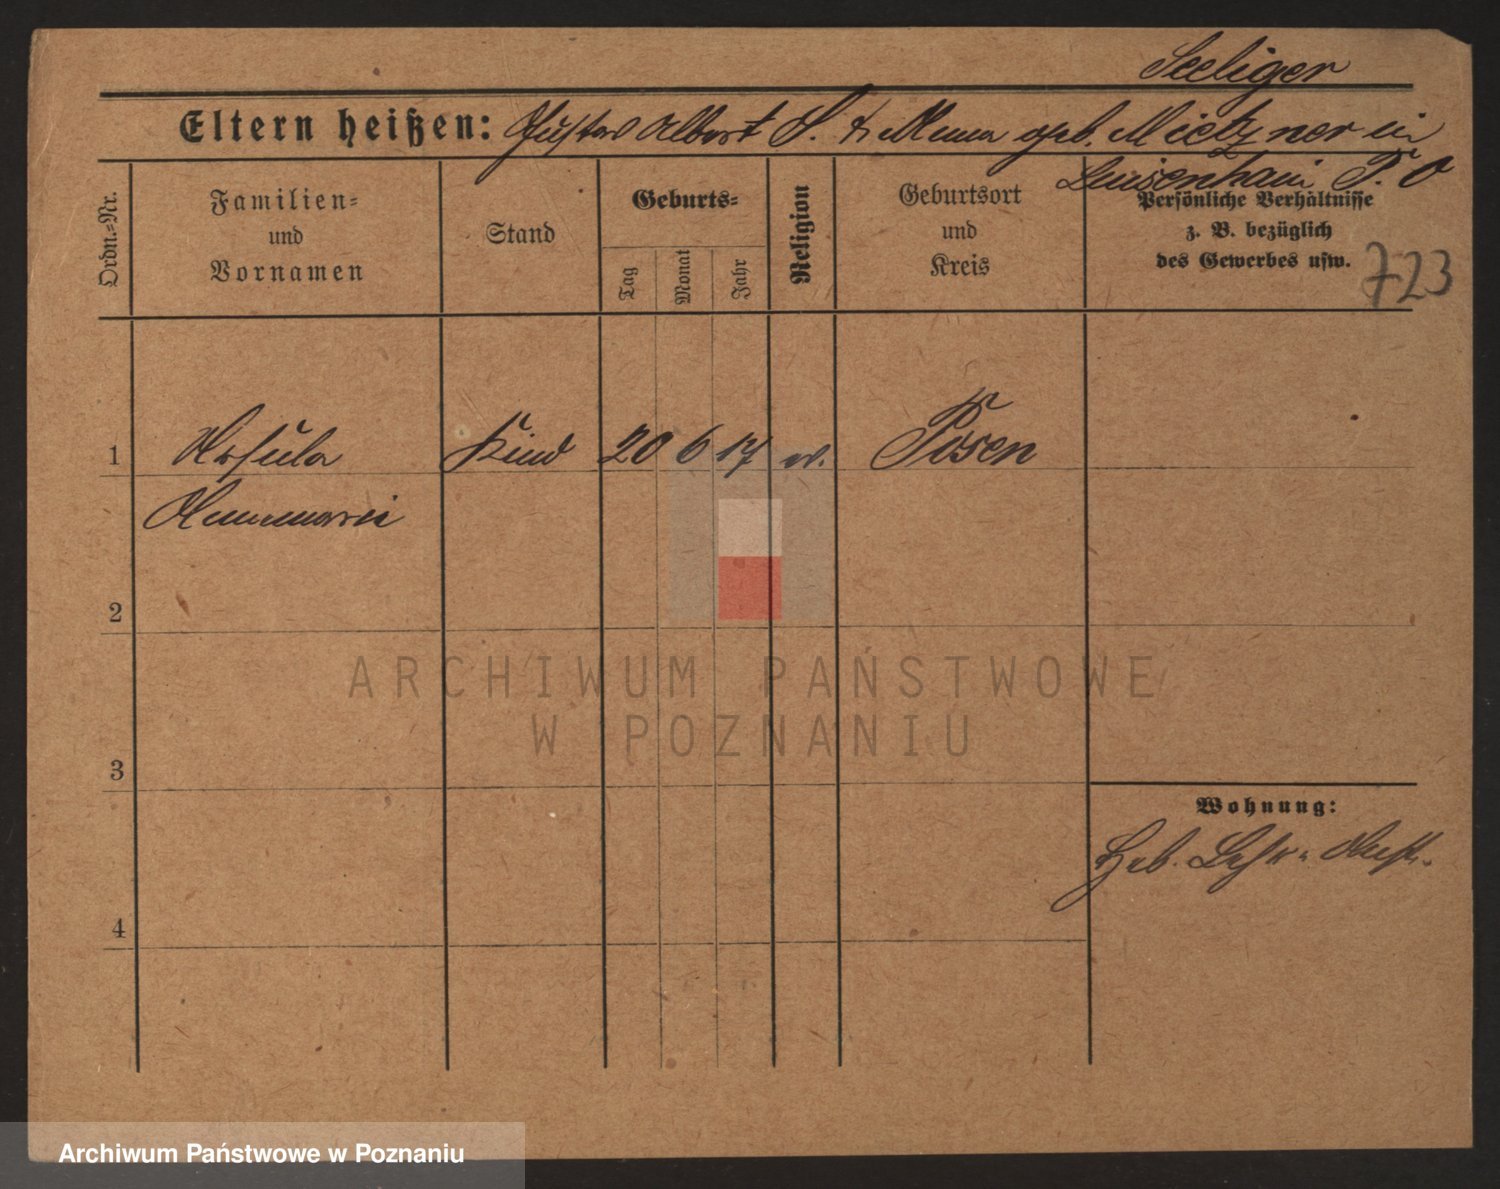 Seeliger
Eltern heißen: Gustav Albert S. & Anna geb. Mietzner in
Luisenhain P. O
Ordn.-Nr.
Familien-
und
Vornamen
Stand
Geburts-
Tag
Monat
Jahr
Religion
Geburtsort
und
Kreis
Persönliche Verhältnisse
z. B. bezüglich
des Gewerbes usw.
723
1 Ursula Kind 20 6 17 ev. Posen
Annemarie
2
3
4
Wohnung:
Heb. Lehr- Anst.
ARCHIWUM PAŃSTWOWE
W POZNANIU
Archiwum Państwowe w Poznaniu